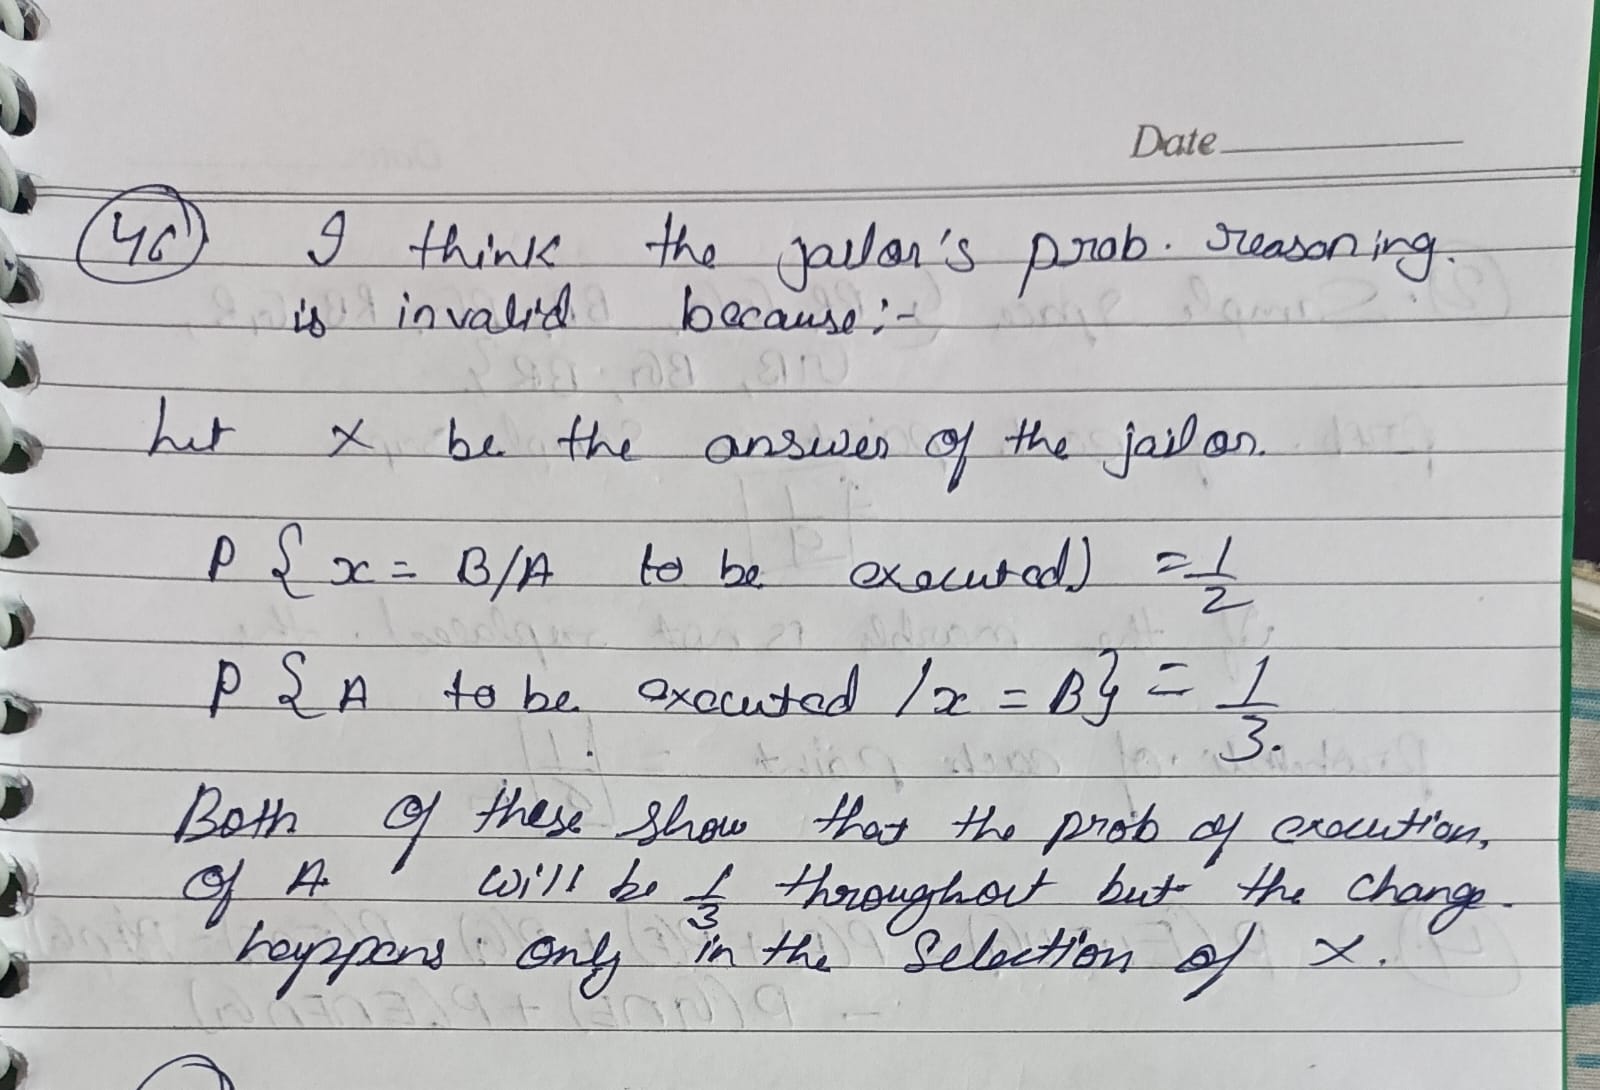 Date
46) I think the jailor's prob. reasoning.
is invalid because:-
Let X be the answer of the jailor.
P { x = B/A to be executed) = 1/2
P { A to be executed / x = B} = 1/3.
Both of these show that the prob of execution,
of A will be 1/3 throughout but the change
happens only in the selection of x.